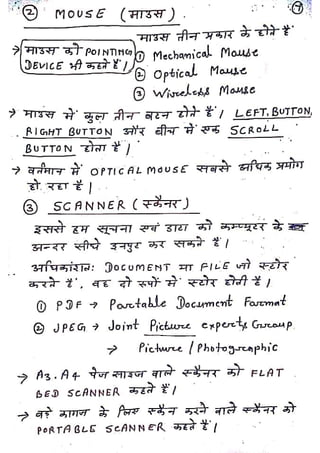 ② MOUSE (माउस). ⑦
माउस तीन प्रकार के होते हैं
→ माउस को POINTING DEVICE भी कहते हैं।
① Mechanical Mouse
② Optical Mouse
③ Wireless Mouse
→ माउस में कुल तीन बटन होते हैं। LEFT BUTTON,
RIGHT BUTTON और बीच में एक SCROLL
BUTTON होता है।
→ वर्तमान में OPTICAL MOUSE सबसे अधिक प्रयोग
हो रहा है।
③ SCANNER (स्कैनर)
इससे हम सूचना एवं डाटा को कम्प्यूटर के
अन्दर सीधे इनपुट कर सकते हैं।
अधिकांशतः DOCUMENT या FILE जो स्टोर
करते हैं, वह दो रूपों में स्टोर होती है।
① PDF → Portable Document Format
② JPEG → Joint Picture experts Group
→ Picture / Photographic
→ A3, A4 पेज साइज वाले स्कैनर को FLAT
BED SCANNER कहते हैं।
→ बड़े कागज के लिए स्कैन करने वाले स्कैनर को
PORTABLE SCANNER कहते हैं।